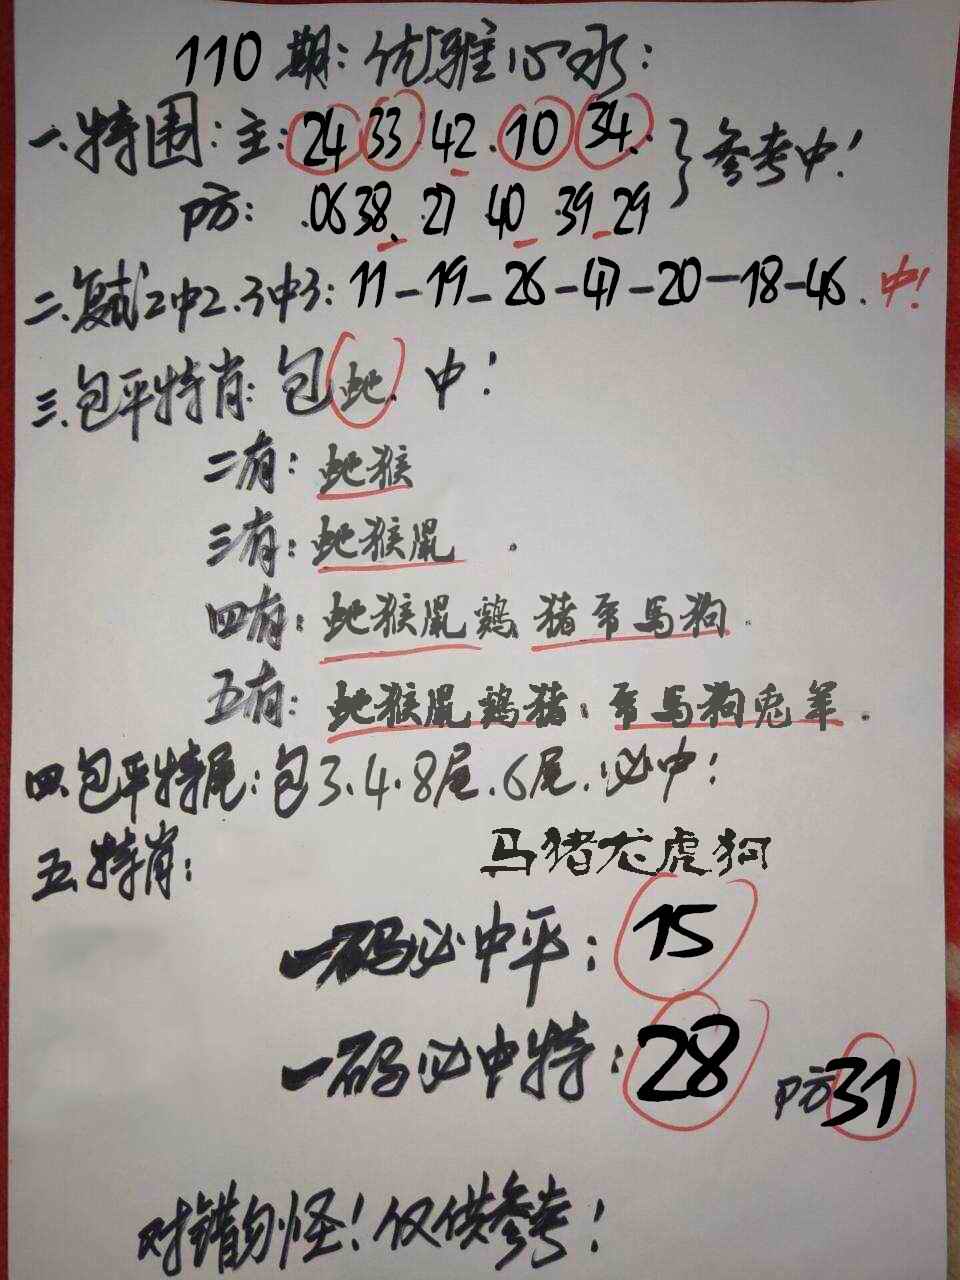 110期:优雅心水:
一.特围:主:24 33 42.10 34.}参考中!
防:.06 38.27 40 39 29
二.复式2中2.3中3:11-19-26-47-20-18-46.中!
三.包平特肖:包蛇.中!
二有:蛇猴
三有:蛇猴鼠.
四有:蛇猴鼠鷄猪.马狗.
五有:蛇猴鼠鷄猪.马狗兔羊.
四.包平特尾:包3.4.8尾.6尾.必中!
五.特肖:
马猪龙虎狗
一码必中平:15
一码必中特:28 防31
对错勿怪!仅供参考!